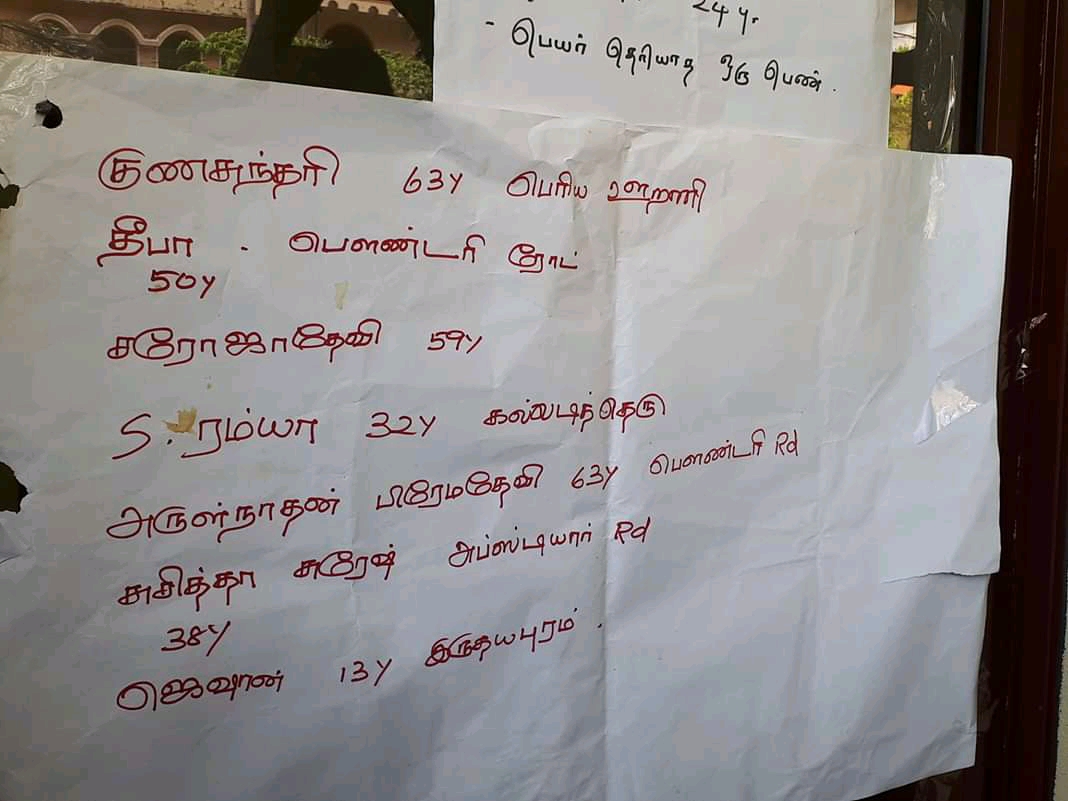 24 y.
- பெயர் தெரியாத ஒரு பெண்.
குணசுந்தரி 63y பெரிய ஊறணி
தீபா . பௌண்டரி ரோட்
50y
சரோஜாதேவி 59y
S. ரம்யா 32y கல்லடித்தெரு
அருள்நாதன் பிரேமதேவி 63y பௌண்டரி Rd
சுசித்தா சுரேஷ் அப்ஸ்டியார் Rd
38y
ஜெஷான் 13y இருதயபுரம் .